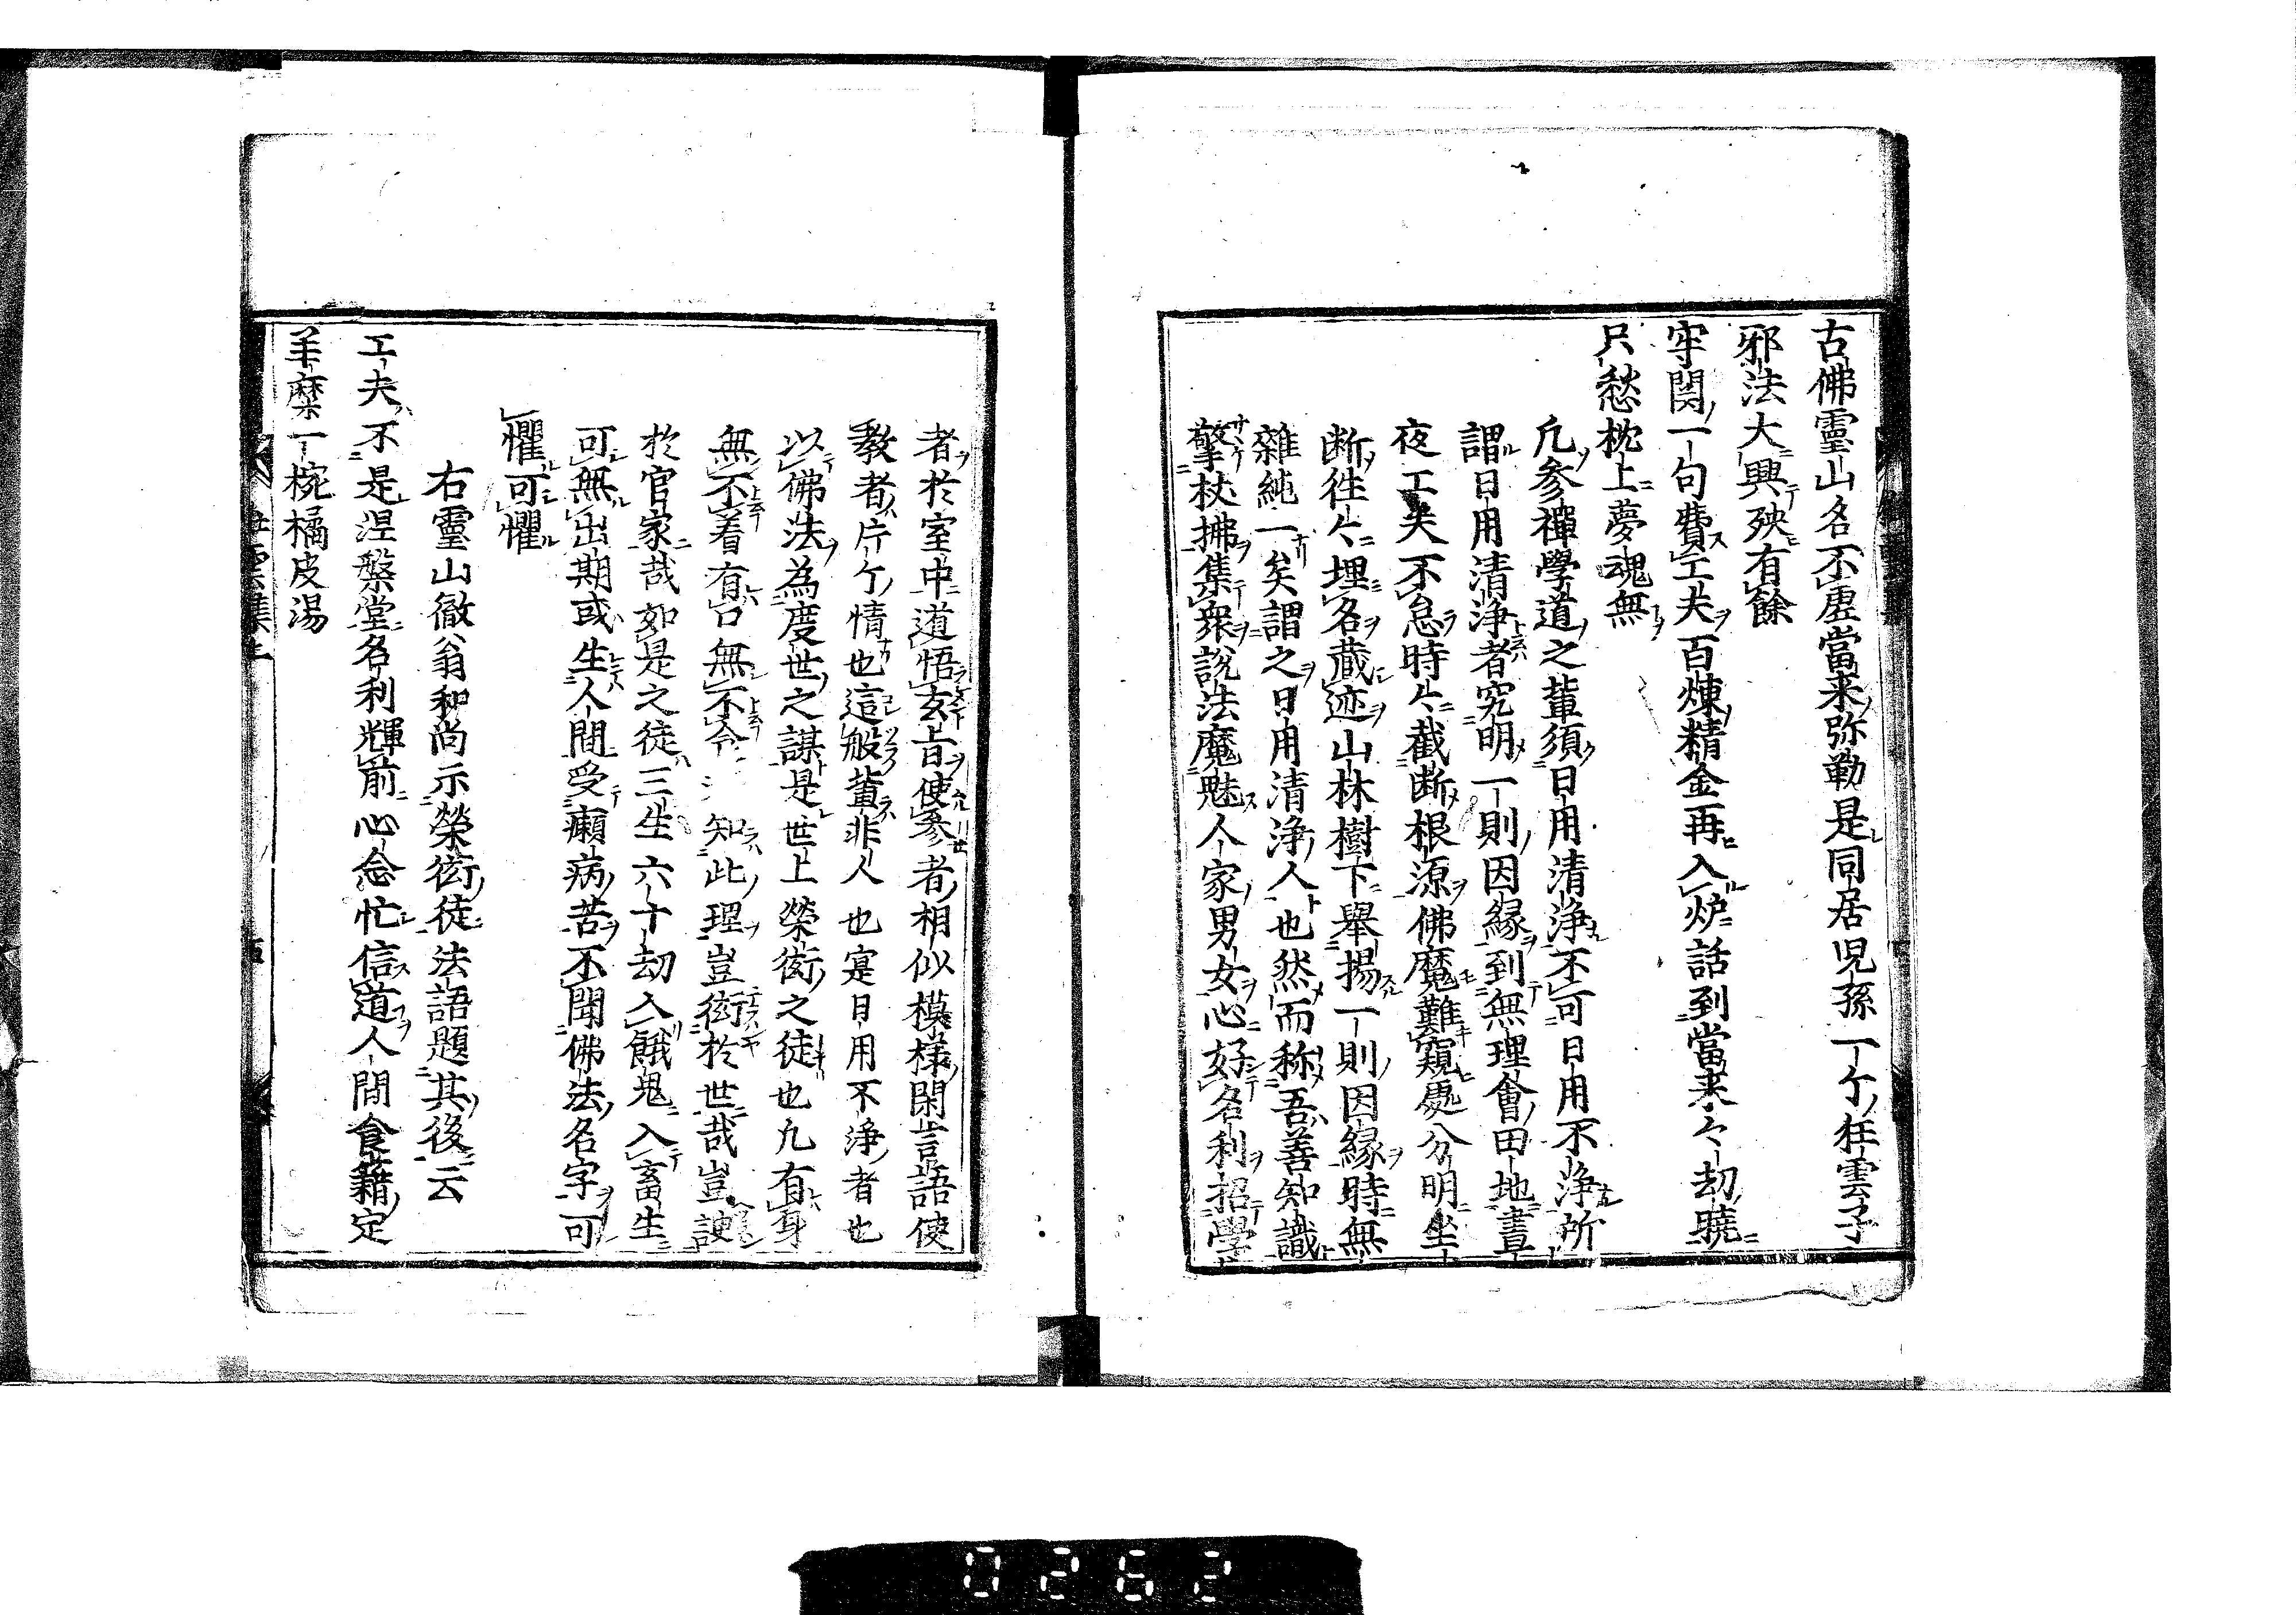 古佛靈山名不虚當来弥勒是同居児孫一个狂雲子
邪法大興殃有餘
牢関一句費工夫百煉精金再入炉話到當来々劫曉
只愁枕上夢魂無
凢参禅學道之輩須日用清浄不可日用不浄所
謂日用清浄者究明一則因縁到無理會田地晝
夜工夫不怠時々截断根源佛魔難窺處分明坐
断徃々埋名蔵迹山林樹下舉揚一則因縁時無
雜純一矣謂之日用清浄人也然而称吾善知識
擎杖拂集衆說法魔魅人家男女心好名利招學
者於室中道悟玄旨使参者相似模様閑言語使
教者片个情也這般輩非人也寔日用不浄者也
以佛法為度世之謀是世上榮衒之徒也凢有身
無不着有口無不食 知此理豈衒於世哉豈諛
於官家哉如是之徒三生六十劫入餓鬼入畜生
可無出期或生人間受癩病苦不聞佛法名字可
懼可懼
右靈山徹翁和尚示榮衒徒法語題其後云
工夫不是涅槃堂名利輝前心念忙信道人間食籍定
羊糜一椀橘皮湯
狂雲集上
0262